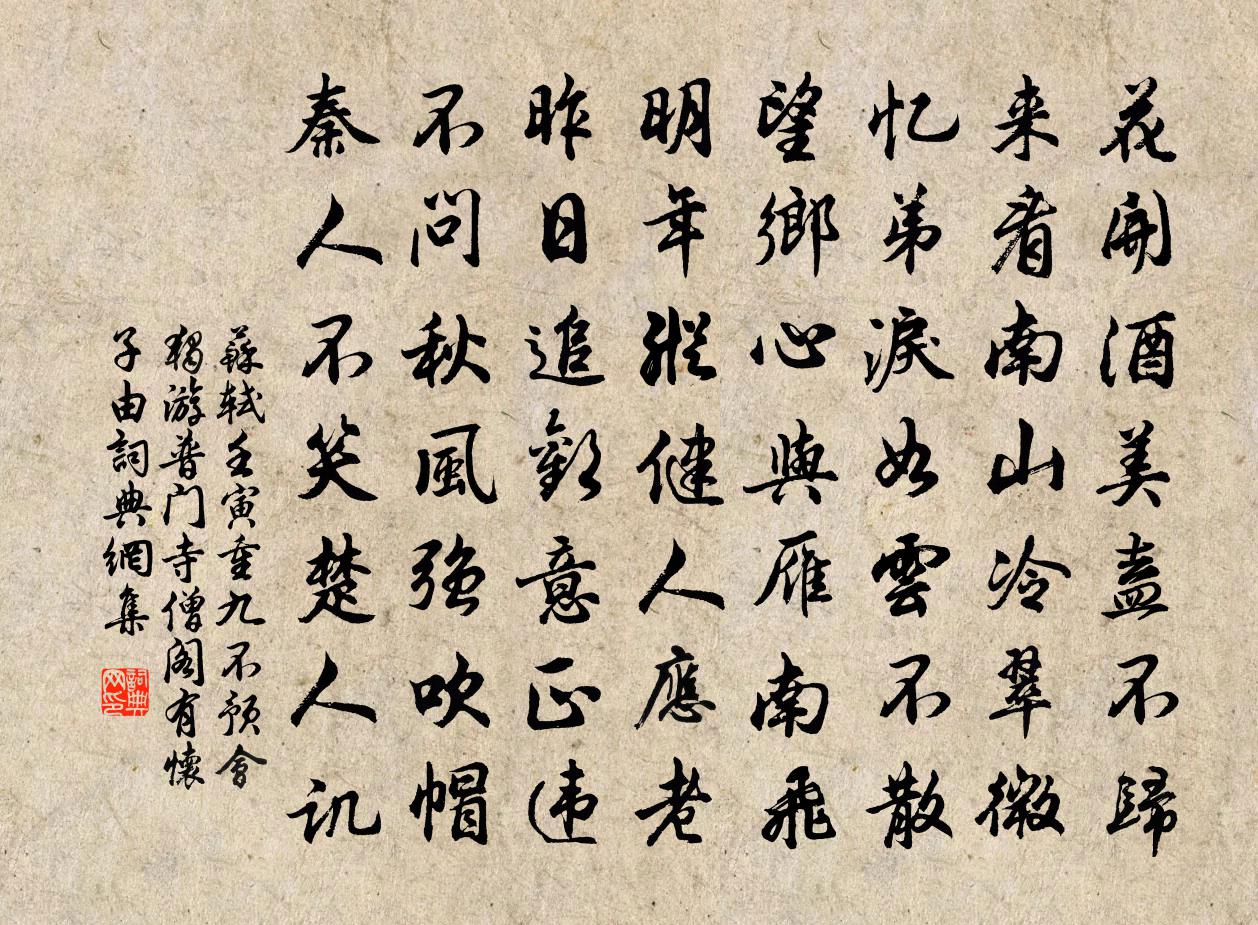 花開酒美盍不歸
来看南山冷翠微
忆弟淚如雲不散
望鄉心與雁南飛
明年縱健人應老
昨日追歡意正违
不問秋風強吹帽
秦人不笑楚人讥
蘇轼壬寅重九不预會
獨游普门寺僧阁有懷
子由詞典網集
詞典
网印